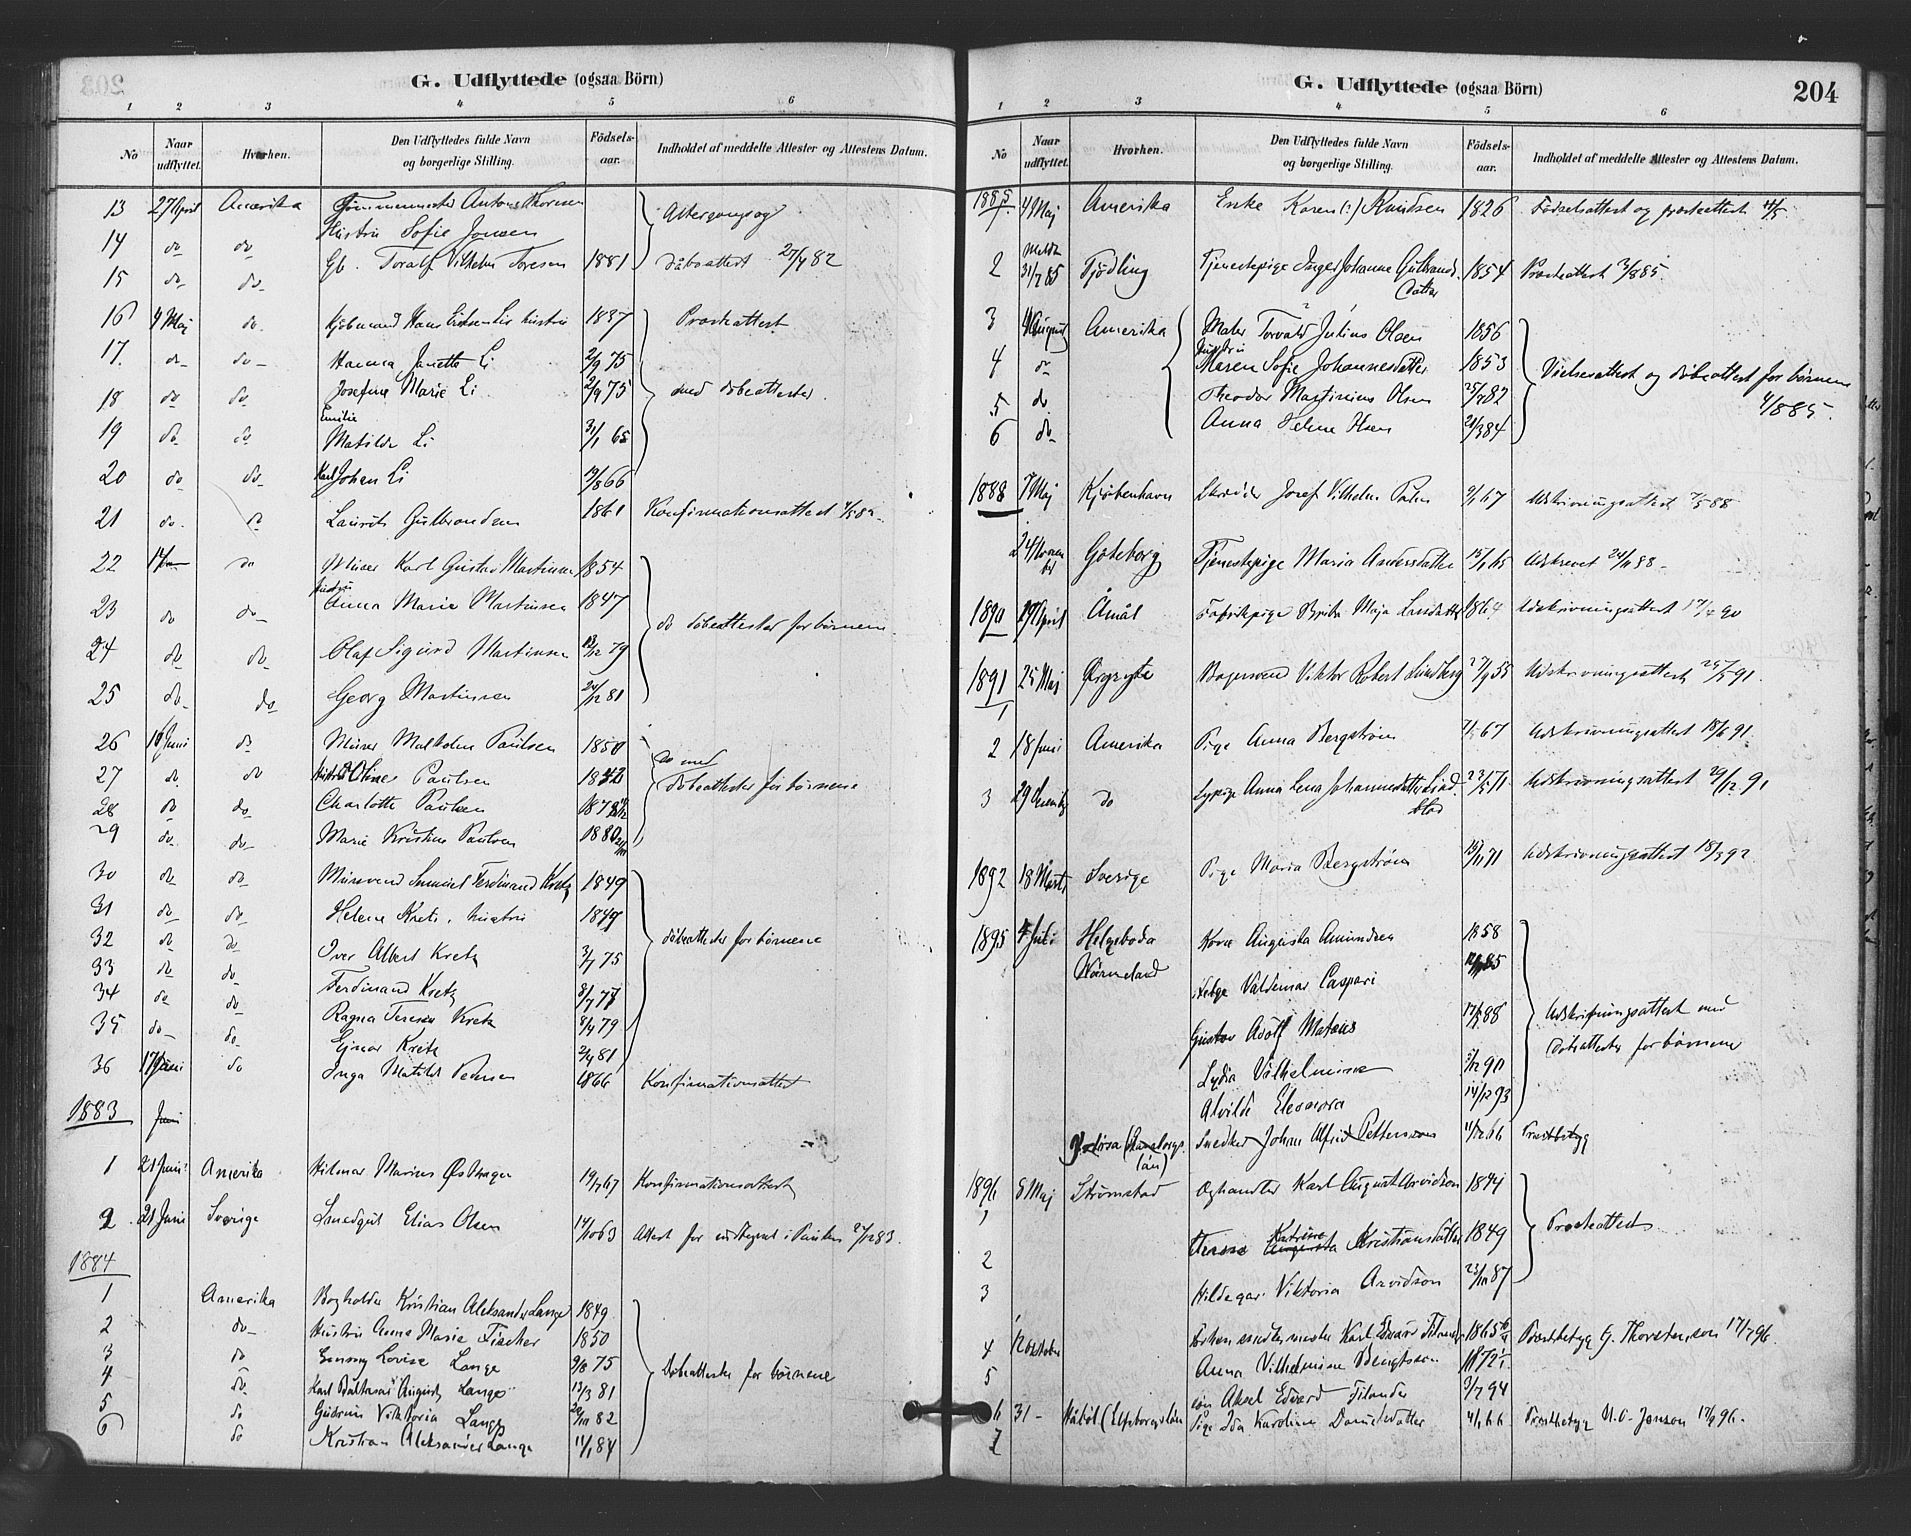 G. Udflyttede (ogsaa Börn)
1 2 3 4 5 6
No Naar udflyttet. Hvorhen. Den Udflyttedes fulde Navn og borgerlige Stilling. Födsels-aar. Indholdet af meddelte Attester og Attestens Datum.
13 27 April Amerika Tømmermand Anton Thoresen
14 do do Hustru Sofie Jensen
15 do do Gb. Toralf Vilhelm Toresen 1881 Daabsattest 27/4 82
16 4 Maj do Kjøbmand Hans Li hustru 1837 Præsteattest
17. do do Hanna Janette Li 2/9 75
18 do do Josefine Marie Li 2/9 75 med døbeattester
19 do do Emilie Matilde Li 3/1 65
20 do do Karl Johan Li 19/8 66
21 do. do Laurits Gulbrandsen 1861 Konfirmationsattest
22 do Murer Karl Gustav Martinsen 1854
23 do do hustru Anna Marie Martinsen 1847 do døbeattester for børnene
24 do do Olaf Sigurd Martinsen 13/12 79
25 do do Georg Martinsen 24/12 81
26 Juni do Murer Paulsen 1850 do med
27 do do Hustru Paulsen døbeattester for børnene
28 do do Charlotte Paulsen
29 do do Marie Kristine Paulsen 1880
30 do do Murersvend Samuel Ferdinand Kretz 1849
31 do do Helene Kretz, hustru 1849
32 do do Iver Albert Kretz 3/7 75 døbeattester for børnene
33 do do Ferdinand Kretz
34 do do Ragna Teresia Kretz 8/4 79
35 do do Ejnar Kretz 2/4 81
36 17 Juni do Inga Matilde Pedersen 1866 Konfirmationsattest
1883 Juni
1 21 Juni Amerika Hilmar Marius Østhagen 19/7 67 Konfirmationsattest
2 21 Juni Sverige Elias Olsen 14/10 63 Attest for 21/12 83.
1884
1 Amerika Bogholder Kristian Aleksander Lange 1849
2 do Hustru Anna Marie Fischer 1850
3 do Lovise Lange 9/8 75
4 do Karl Baltasar August Lange 13/3 81 Døbeattester for børnene
5 do Gudrun Viktoria Lange 82
6 do Kristian Aleksander Lange 11/1 84
G. Udflyttede (ogsaa Börn) 204
1 2 3 4 5 6
No Naar udflyttet. Hvorhen. Den Udflyttedes fulde Navn og borgerlige Stilling. Födsels-aar. Indholdet af meddelte Attester og Attestens Datum.
1885 1 4 Maj Amerika Enke Karen (?) Knudsen 1826 Fødselsattest og præsteattest 4/5
2 Meldt 31/7 85 Tjødling Tjenestepige Inger Johanne Gulbrandsdatter 1854 Præsteattest 3/8 85.
3 4 August Amerika Maler Torvald Julius Olsen 1856
4 do hustru Maren Sofie Johannesdatter 1853 Vielsesattest og døbeattest for børnene
5 do Theodor Martinius Olsen 25/7 82 4/8 85.
6 do Anna Helene Olsen 84
1888 7 Maj Kjøbenhavn Skrædder Josef Vilhelm Palm 67 Udskrivningsattest 7/5 88
2 24 Novem. Göteborg Tjenestepige Maria Andersdatter 15/1 65 Udskrevet 24/11 88
1890 29 April Åmål Fabrikpige Brita Maja Larsdatter 1864 Udskrivningsattest 90
1891 1 25 Maj Ørgryte Bagersvend Viktor Robert Lundberg 55 Udskrivningsattest 25/5 91.
2 18 Juni Amerika Pige Anna Bergstrøm 67 Udskrivningsattest 18/6 91.
3 29 do Sypige Anna Lena Johannesdatter Lindblad 23/5 71 Udskrivningsattest 29/12 91
1892 18 Marts Sverige Pige Maria Bergstrøm 71 Udskrivningsattest 18/3 92
1895 4 Juli Helgeboda Wärmeland Kone Augusta Amundsen 1858
Helge Valdemar Caspari 85
Gustav Adolf Mateus 88 Udskrifningsattest med
Lydia Vilhelmine 3/12 90 Døbeattester for børnene
Alvilde Eleonora 14/12 93
Snedker Johan Alfred Pettersson 66 Prestbetyg
1896 1 8 Maj Strømstad Ophandler Karl August Arvidson 1844
2 Terese Katrina Kristiansdatter 1849 Præsteattest
3 Hildegar Viktoria Arvidson 87
4 oktober Karl Edvard Filander 1865 Præstbetyg G. Thorstenson 17/7 96.
5 Anna Vilhelmine Bengtsson 1872
6 søn Aksel Edvard Filander 3/7 94
7 31 – Håbøl (Elfsborgs län Pige Ida Karolina Danielsdatter 4/1 66 Præstbetyg Jonson 96.